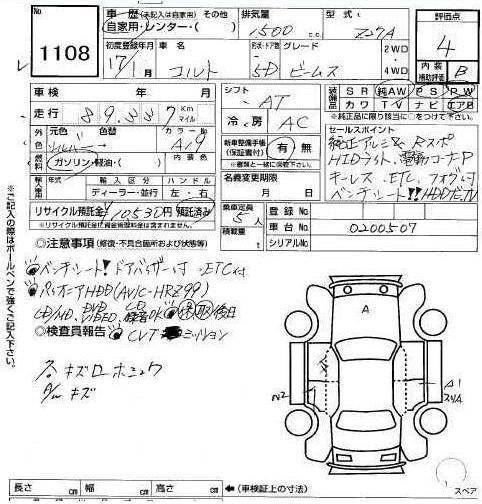 No
1108
車歴 (未記入は自家用) その他
自家用・レンター・( )
排気量
1500 cc
型式
Z27A
評価点
4
初度登録年月
17年 1月
車名
コルト
形状・ドア数
5D
グレード
ビームス
2WD
4WD
内装
補助評価
B
車検 年 月
走行 89,337 Km マイル
シフト
AT
装備
SR 純AW PS PW
カワ TV ナビ エアB
※純正品に限り該当に○をつけて下さい
外色
元色
シルバー
色替
カラーNo
A19
冷房
AC
セールスポイント
純正アルミ& Rスポ
HIDライト、電動コーナーP
キーレス、ETC、フォグ付
ベンチシート!! HDDナビTV
燃料
ガソリン・軽油・( )
内装色
新車整備手帳
(保証書付)
有・無
※書類と一緒に後送下さい。
輸入車
年式
輸入区分
ディーラー・並行
ハンドル
左・右
名義変更期限
月 日
リサイクル預託金 10530円 預託済み
※リサイクル預託金は含まれません。
乗車定員
5人
積載量
t
登録No
車台No
0200507
シリアルNo
◎注意事項 (修復・不具合箇所および状態)
ベンチシート! ドアバイザー付 ETC付
パイオニアHDD(AVIC-HRZ99)
CD/MD, DVD VIDEO, CD 録音OK 保取後日
◎検査員報告
CVTミッション
各キズ
A/W キズ
A
A1
スリA
N2
長さ cm 幅 cm 高さ cm ←(車検証上の寸法)
スペア
※ご記入の際はボールペンで強くご記入下さい。